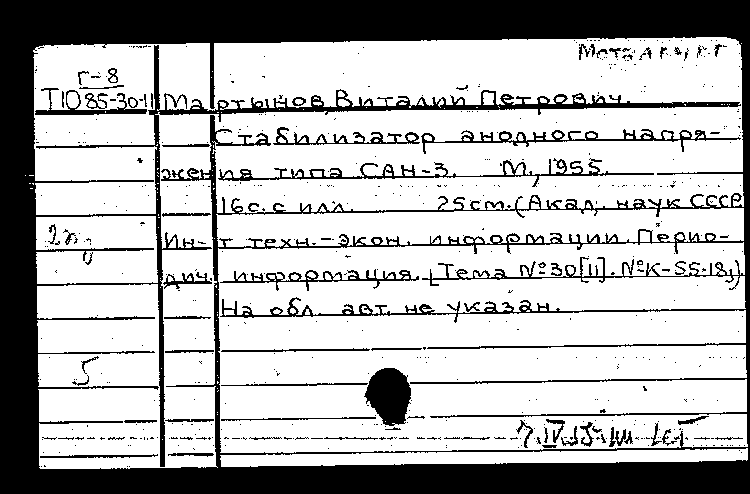 г-8
Т10 85-30-11 Мартынов, Виталий Петрович.
Стабилизатор анодного напря-
жения типа САН-3. М., 1955.
16с. с илл. 25см. (Акад. наук СССР
2л. Ин-т техн.-экон. информации. Перио-
дич. информация. [Тема №30[11]. №К-55-18,)
На обл. авт. не указан.
5